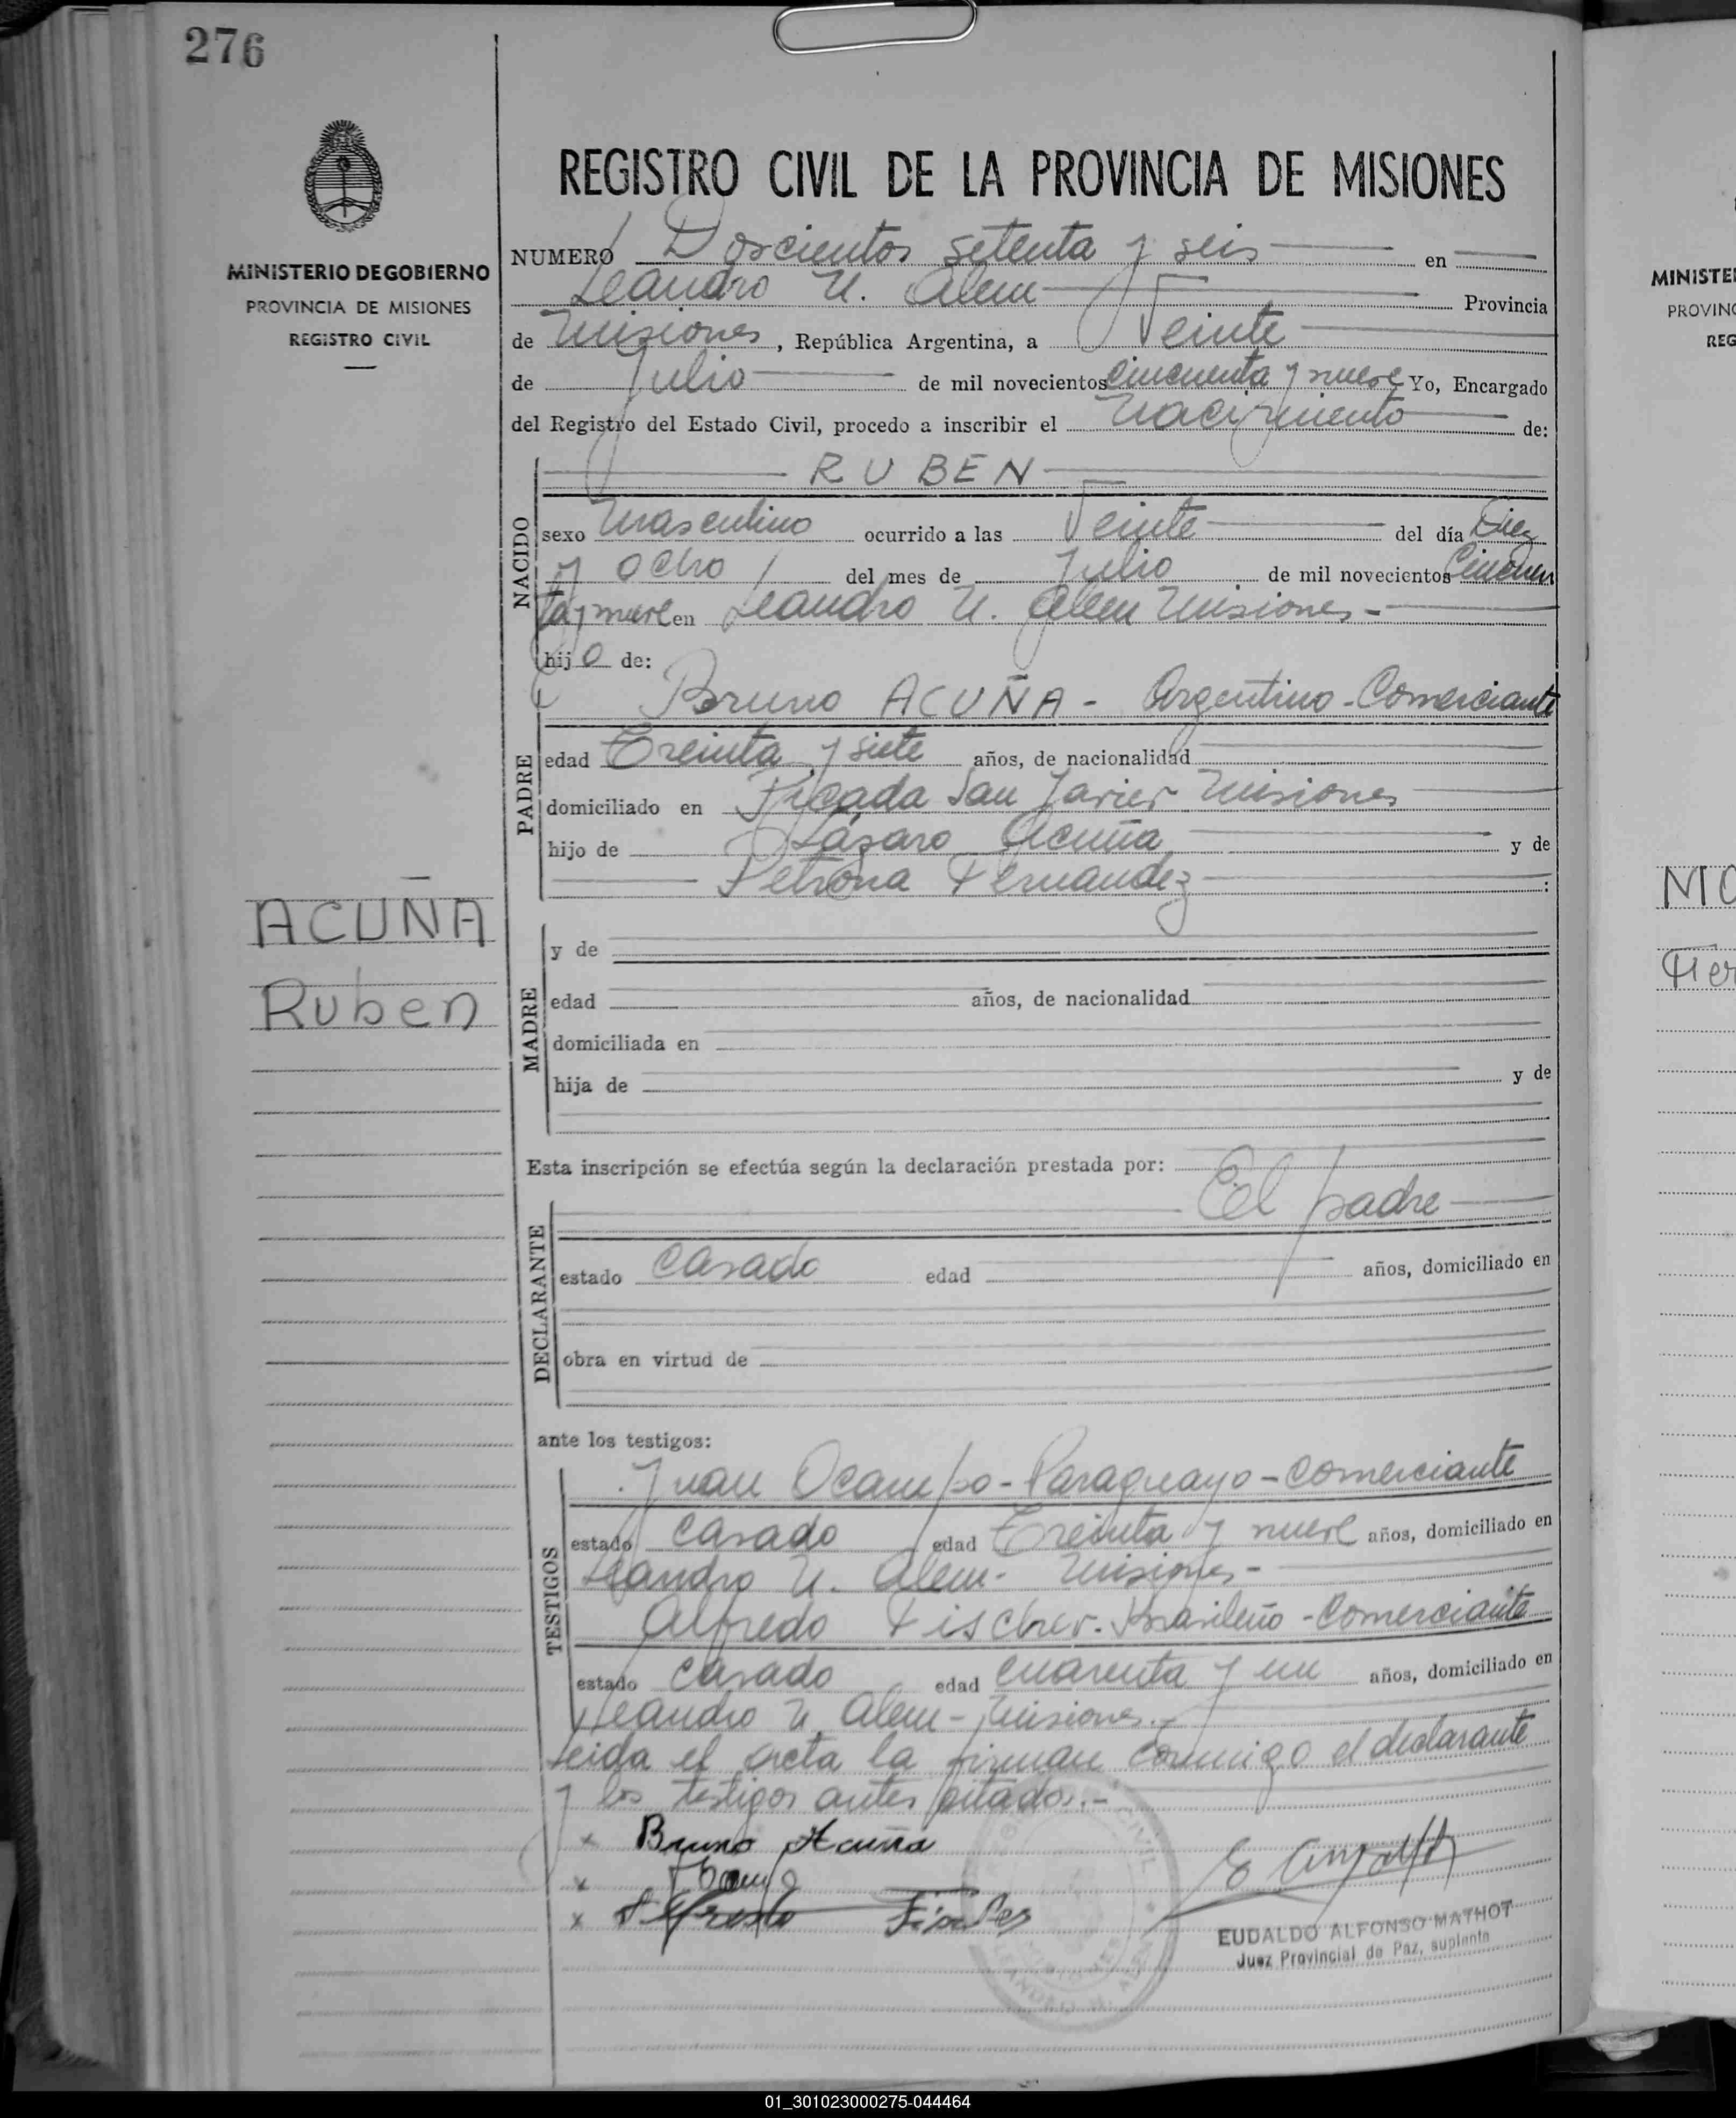 276
MINISTERIO DE GOBIERNO
PROVINCIA DE MISIONES
REGISTRO CIVIL
ACUÑA
Ruben
REGISTRO CIVIL DE LA PROVINCIA DE MISIONES
NUMERO Doscientos setenta y seis en
Leandro N. Alem Provincia
de Misiones, República Argentina, a Veinte
de Julio de mil novecientos cincuenta y nueve Yo, Encargado
del Registro del Estado Civil, procedo a inscribir el nacimiento de:
NACIDO
RUBEN
sexo Masculino ocurrido a las Veinte del día Diez
y ocho del mes de Julio de mil novecientos Cincuen
ta y nueve en Leandro N. Alem Misiones-
hijo de:
PADRE
Bruno ACUÑA - Argentino - Comerciante
edad Treinta y siete años, de nacionalidad
domiciliado en Picada San Javier Misiones
hijo de Lázaro Acuña y de
Petrona Fernandez :
MADRE
y de
edad años, de nacionalidad
domiciliada en
hija de y de
Esta inscripción se efectúa según la declaración prestada por:
DECLARANTE
El padre
estado Casado edad años, domiciliado en
obra en virtud de
ante los testigos:
TESTIGOS
Juan Ocampo - Paraguayo - Comerciante
estado Casado edad Treinta y nueve años, domiciliado en
Leandro N. Alem - Misiones -
Alfredo Fischer - Brasileño - Comerciante
estado Casado edad cuarenta y un años, domiciliado en
Leandro N. Alem - Misiones.-
Leida el acta la firman conmigo el declarante
y los testigos antes citados.-
x Bruno Acuña
x
x Alfredo Fischer
EUDALDO ALFONSO MATHOT
Juez Provincial de Paz, suplente
MINISTE
PROVINC
REG
01_301023000275-044464